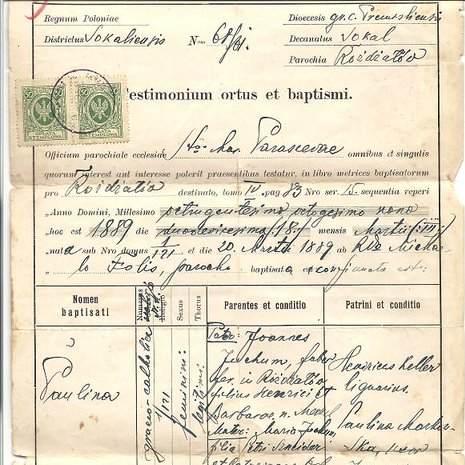 Regnum Poloniae
Districtus Sokaliensis
N. 68/31.
Dioecesis gr. c. Premisliensis
Decanatus Sokal
Parochia Roździałów
Testimonium ortus et baptismi.
Officium parochiale ecclesiae Sta Mar. Parascevae omnibus et singulis
quorum interest aut interesse poterit praesentibus testatur, in libro metrices baptisatorum
pro destinato, tomo IV pag. 83 Nro ser. 15. sequentia reperi
Anno Domini, Millesimo octingentesimo octogesimo nono
hoc est 1889 die duodevicesima /18./ mensis Martii /III/
nata sub Nro domus 1/121 et die 20. Martii 1889 ab Rdo Micha-
lo Folis, parocho baptisata et confirmata est:
Nomen baptisati
Numerus
Religio
Sexus
Thorus
Parentes et conditio
Patrini et conditio
Paulina
graeco-catholica
1/121
feminini
legitimi
Pater: Joannes
faber
fer. in
filius Henrici et
Barbarae n.
Mater: Maria
filia Petri
Henricus Keller
lignarius.
Paulina